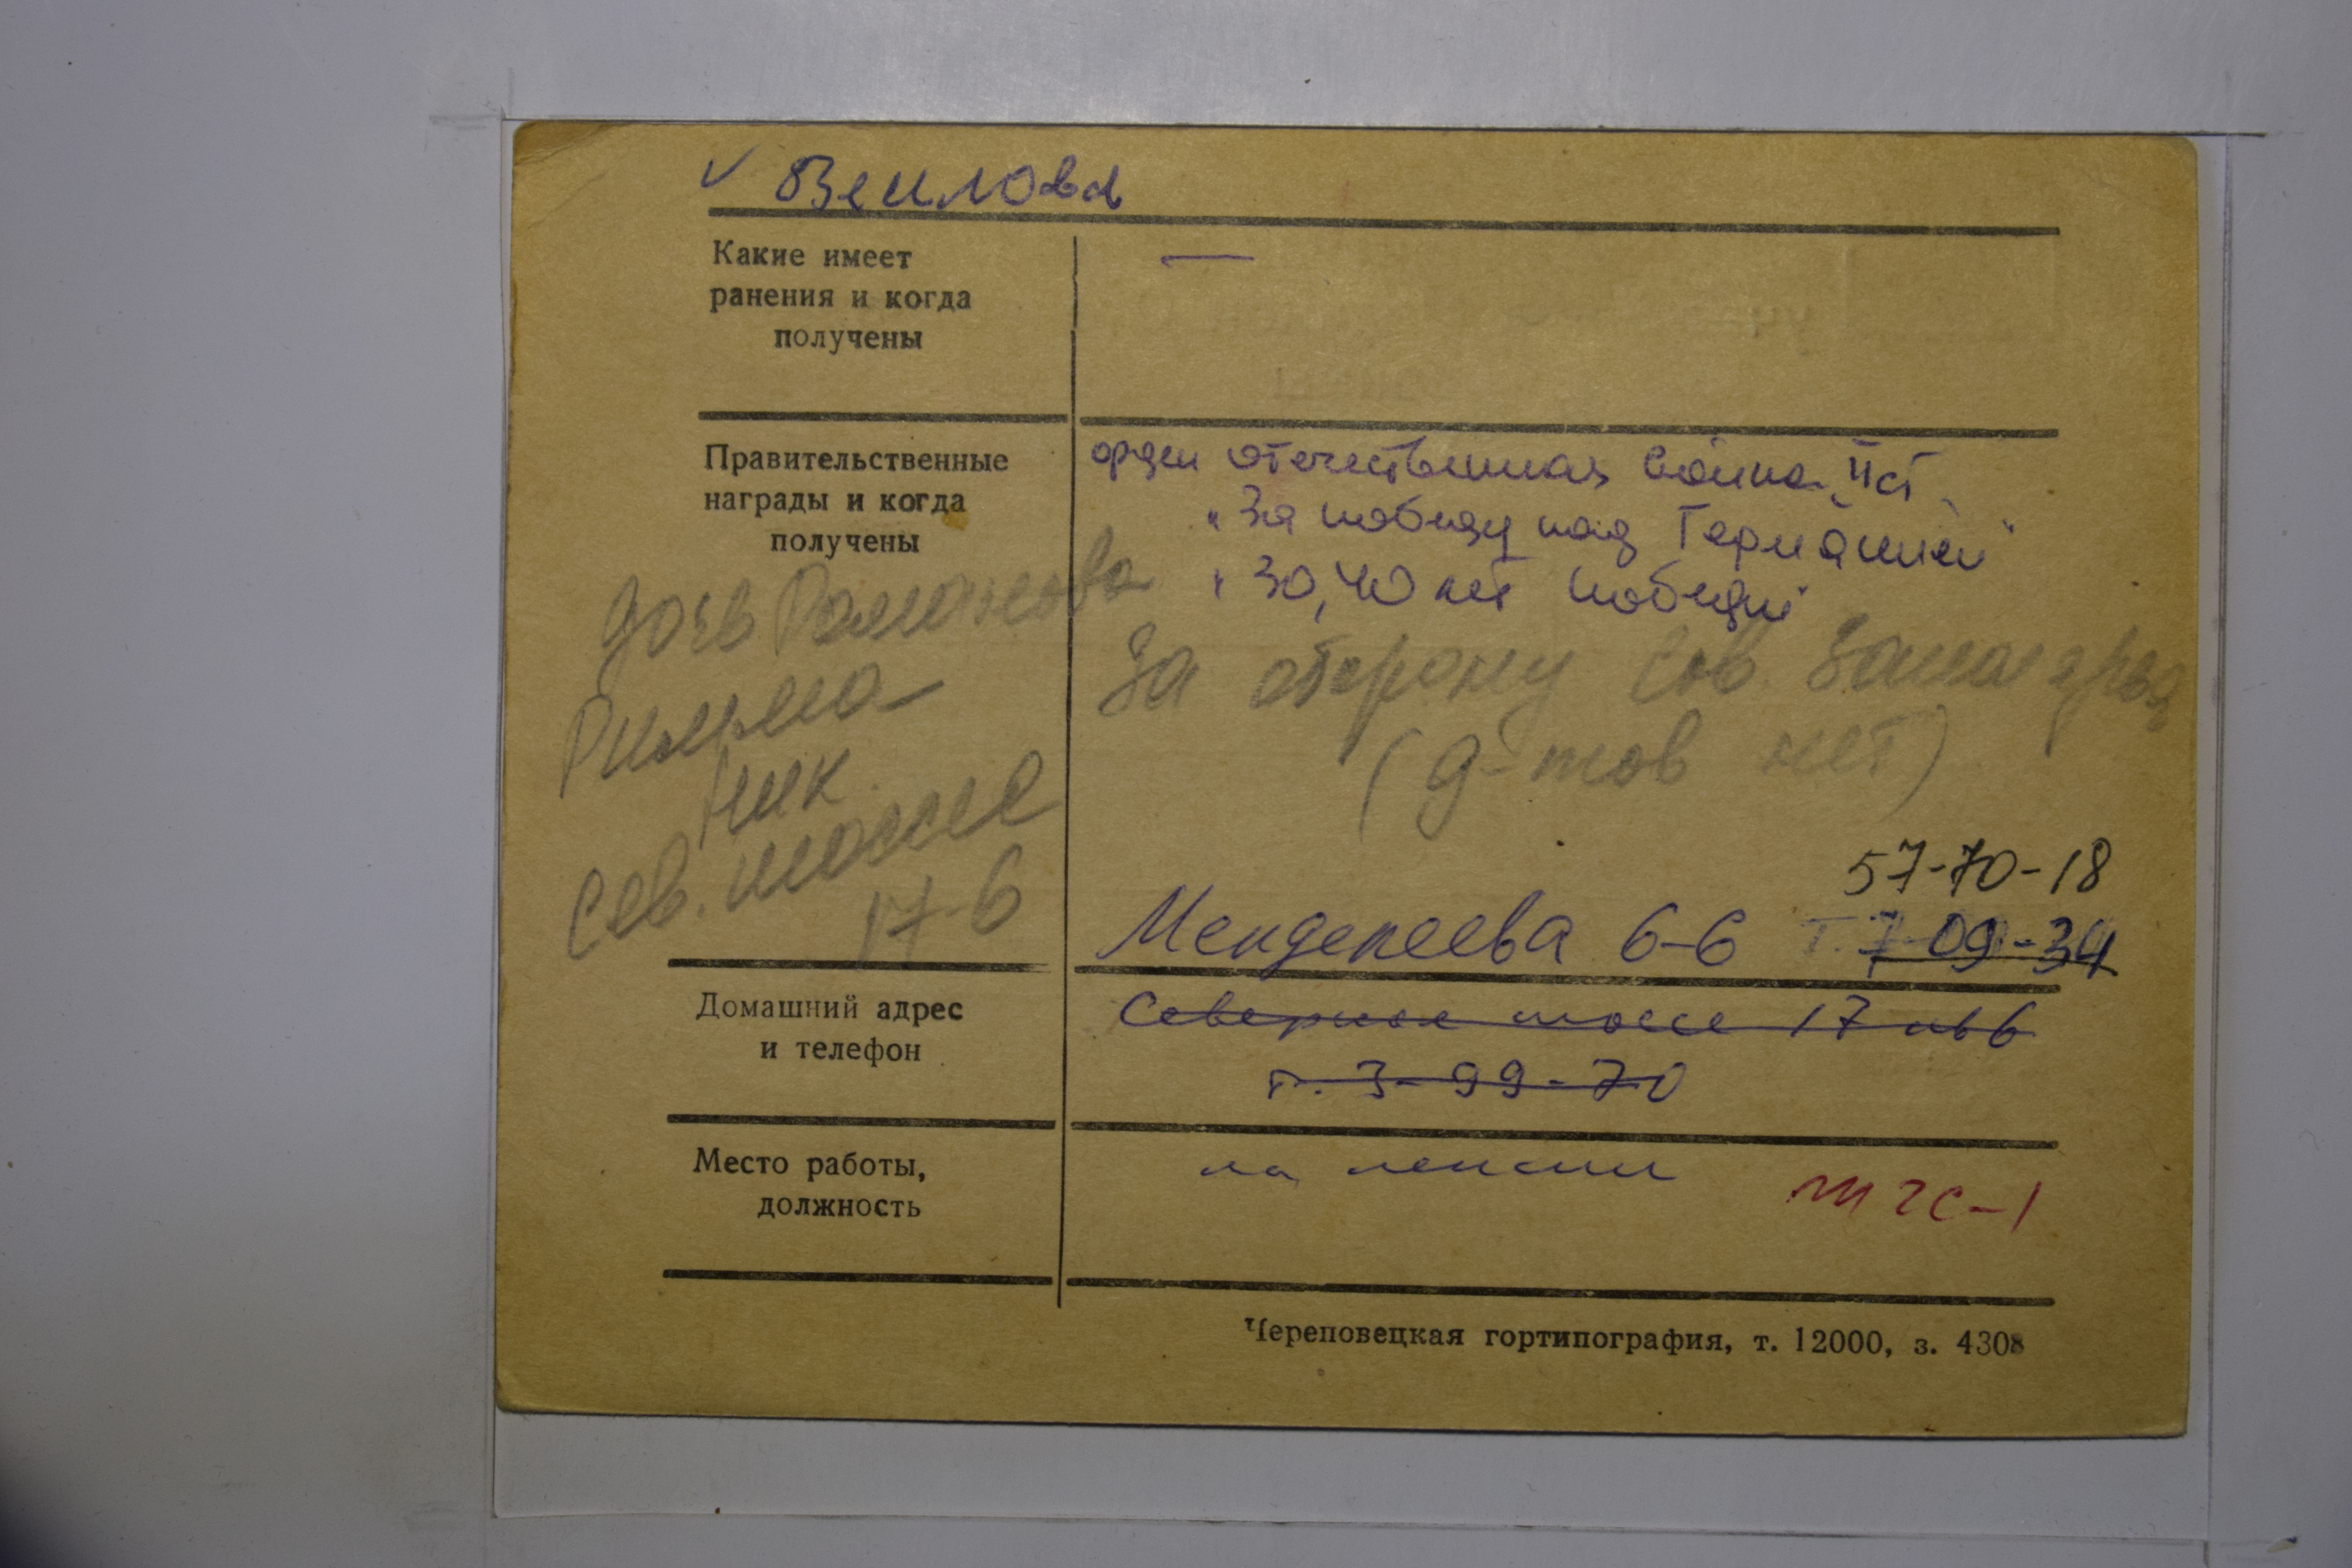 ✓ Веилова
Какие имеет
ранения и когда
получены
—
Правительственные
награды и когда
получены
орден отечественная война IIст
"За победу над Германией"
"30, 40 лет победы"
За оборону Сов. Заполярья
(д-тов нет)
дочь Романова
Римма
Ник.
Сев. шоссе
17-6
57-70-18
Менделеева 6-6 Т. 7-09-34
Домашний адрес
и телефон
Северное шоссе 17 кв 6
т. 3-99-70
Место работы,
должность
на пенсии
ЖЧС-1
Череповецкая гортипография, т. 12000, з. 4308